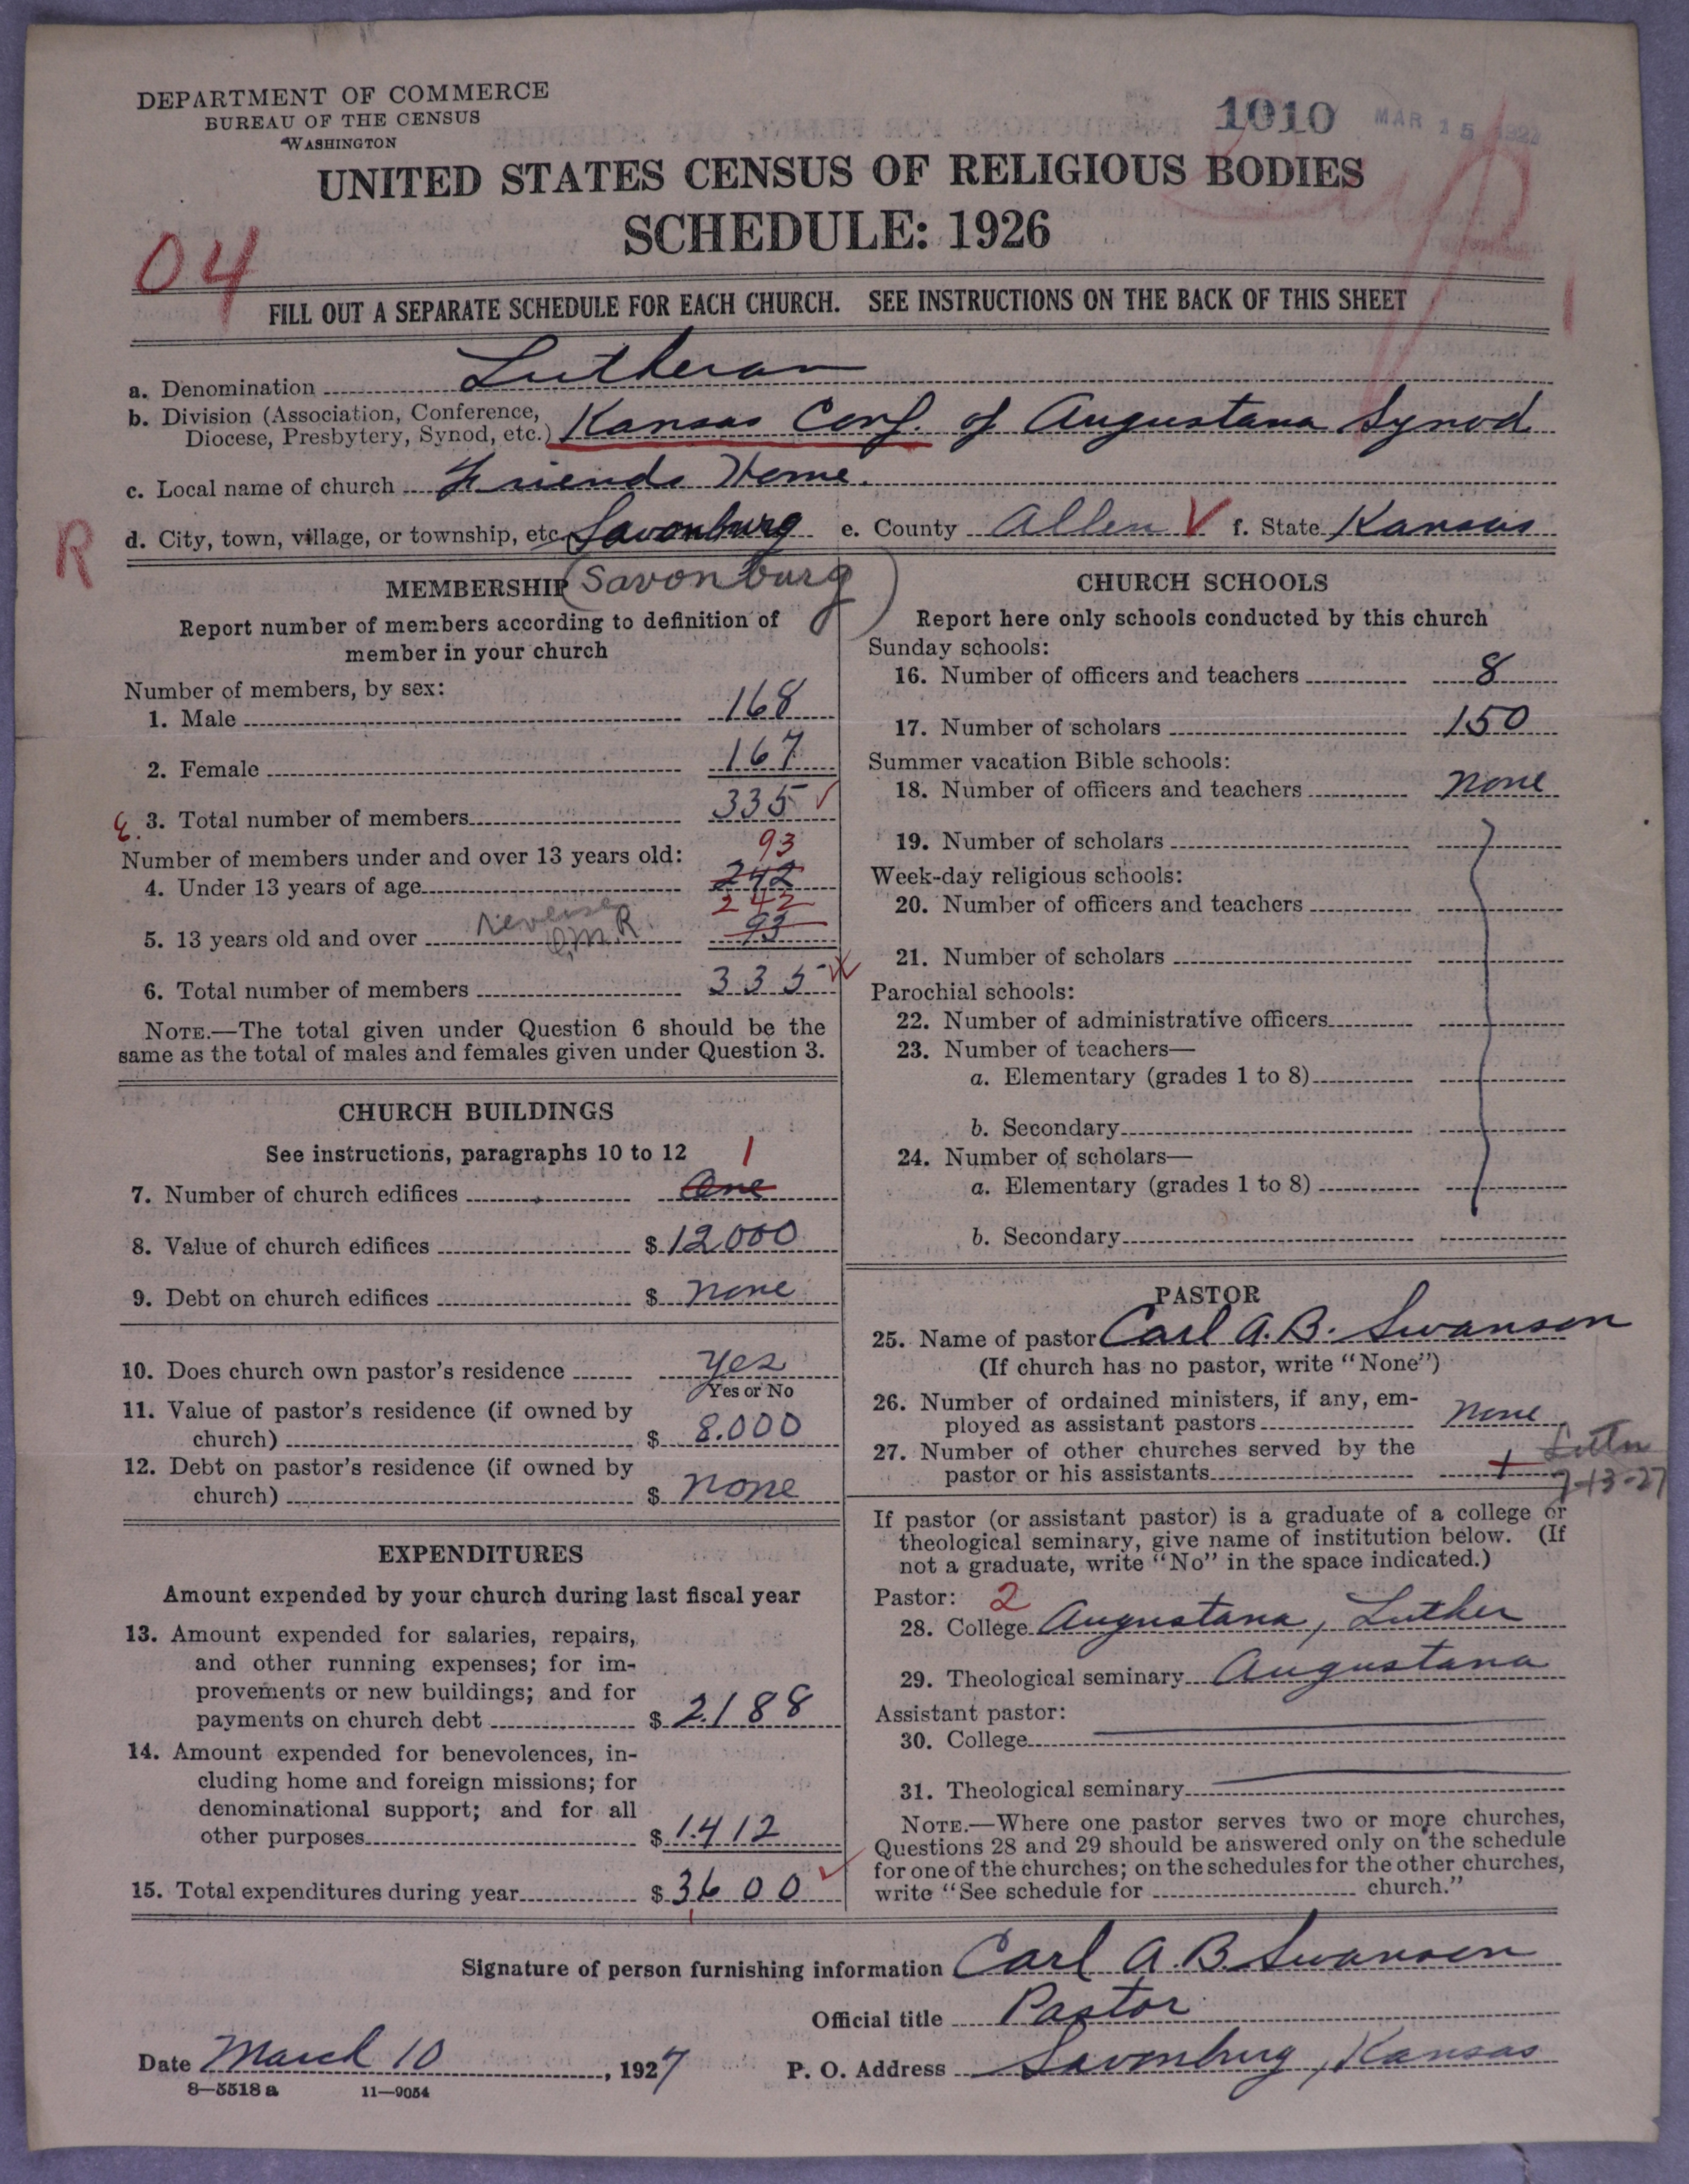 DEPARTMENT OF COMMERCE
BUREAU OF THE CENSUS
WASHINGTON
1010 MAR 15
UNITED STATES CENSUS OF RELIGIOUS BODIES
SCHEDULE: 1926
04
FILL OUT A SEPARATE SCHEDULE FOR EACH CHURCH. SEE INSTRUCTIONS ON THE BACK OF THIS SHEET
1
a. Denomination Lutheran
b. Division (Association, Conference,
Diocese, Presbytery, Synod, etc.) Kansas Conf. of Augustana Synod
c. Local name of church Friends Home.
R
d. City, town, village, or township, etc. Savonburg e. County Allen f. State Kansas
(Savonburg)
MEMBERSHIP
Report number of members according to definition of
member in your church
Number of members, by sex:
1. Male 168
2. Female 167
3. Total number of members 335
Number of members under and over 13 years old: 93
4. Under 13 years of age 242
242
5. 13 years old and over reverse 93
6. Total number of members 335
NOTE.—The total given under Question 6 should be the
same as the total of males and females given under Question 3.
CHURCH BUILDINGS
See instructions, paragraphs 10 to 12 1
7. Number of church edifices One
8. Value of church edifices $ 12000
9. Debt on church edifices $ none
10. Does church own pastor's residence yes
Yes or No
11. Value of pastor's residence (if owned by
church) $ 8.000
12. Debt on pastor's residence (if owned by
church) $ none
EXPENDITURES
Amount expended by your church during last fiscal year
13. Amount expended for salaries, repairs,
and other running expenses; for im-
provements or new buildings; and for
payments on church debt $ 2.188
14. Amount expended for benevolences, in-
cluding home and foreign missions; for
denominational support; and for all
other purposes $ 1.412
15. Total expenditures during year $ 3600
CHURCH SCHOOLS
Report here only schools conducted by this church
Sunday schools:
16. Number of officers and teachers 8
17. Number of scholars 150
Summer vacation Bible schools:
18. Number of officers and teachers none
19. Number of scholars
Week-day religious schools:
20. Number of officers and teachers
21. Number of scholars
Parochial schools:
22. Number of administrative officers
23. Number of teachers—
a. Elementary (grades 1 to 8)
b. Secondary
24. Number of scholars—
a. Elementary (grades 1 to 8)
b. Secondary
PASTOR
25. Name of pastor Carl A. B. Swanson
(If church has no pastor, write "None")
26. Number of ordained ministers, if any, em-
ployed as assistant pastors none
27. Number of other churches served by the
pastor or his assistants
7-13-27
If pastor (or assistant pastor) is a graduate of a college or
theological seminary, give name of institution below. (If
not a graduate, write "No" in the space indicated.)
Pastor: 2
28. College Augustana, Luther
29. Theological seminary Augustana
Assistant pastor:
30. College
31. Theological seminary
NOTE.—Where one pastor serves two or more churches,
Questions 28 and 29 should be answered only on the schedule
for one of the churches; on the schedules for the other churches,
write "See schedule for church."
Signature of person furnishing information Carl A. B. Swanson
Official title Pastor
Date March 10, 1927 P. O. Address Savonburg, Kansas
8—5518 a 11—9054